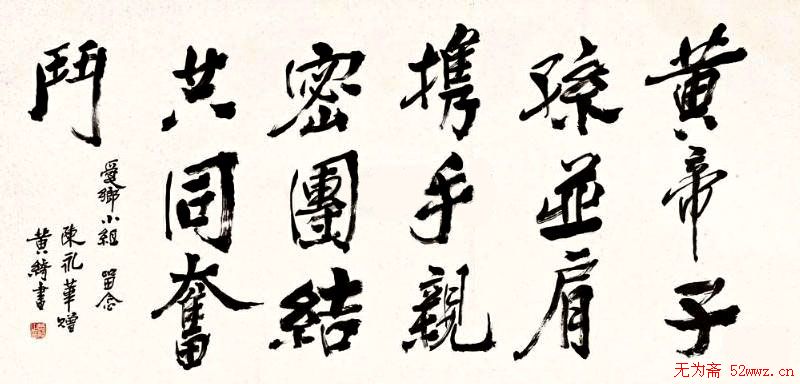 黄帝子
孫並肩
携手親
密團結
共同奮
鬥
愛鄉小組 留念
陳永華贈
黄綺書
无为斋 52wwz.cn